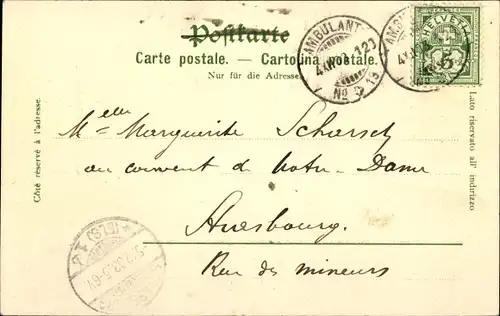 Postkarte
Carte postale. — Cartolina postale.
Nur für die Adresse.
AMBULANT
No
HELVETIA
5
AMBULANT
No
Côté réservé à l'adresse.
Lato riservato all' indirizzo
Melle Marguerite
au couvent de Notre-Dame
Strasbourg.
Rue des mineurs
(ELS)